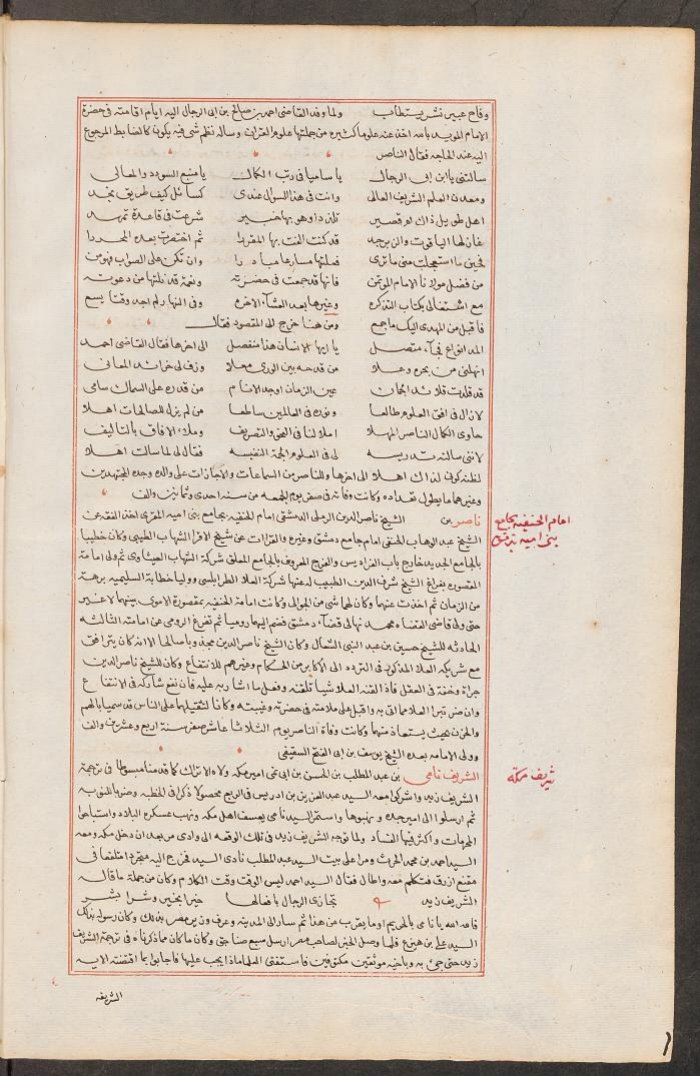 وفاح عبير نشر يستطاب ولما وفد القاضى احمد بن صالح بن ابى الرجال اليه ايام اقامته فى حضرة
الامام المويد بالله اخذ عنه علوما كثيره من جملتها علوم القران وساله نظم شى فيه يكون كالضابط المرجوع
اليه عند الحاجه فقال الناصر
سالتنى يا ابن ابى الرجال يا ساميا فى رتب الكمال يا منبع السودد والمعالى
ومعدن العلم الشريف العالى وانت فى هذا السوال عندى كسائل كيف طريق نجد
اهل طويل ذاك او قصير شرعت فى قاعدة تمهد
قد كنت الفت بها المفردا ثم اختصرت بعده المجردا
وان تكن على الصواب فهو من
من فضل مولانا الامام الموتمن فانها قد جمعت فى حضرته ونعمة قد نلتها من دعوته
مع اشتغالى بكتاب التذكره وغيرها بعد العشاء الاخره وفى النهار لم اجد وقتا يسع
فاقبل من المهدى اليك ما جمع ومن هنا خرج الى المقصود فقال
يا ايها الانسان هذا منفصل الى اخرها فقال القاضى احمد
من قدحه بين الورى معلا وزف لى خرائد المعانى
قد قلدت قلائد الجمان عين الزمان اوحد الانام من قدره على السماك سامى
لا زال فى افق العلوم طالعا ونوره فى العالمين ساطعا من لم يزل للصالحات اهلا
حاوى الكمال الناصر المهلا املا لنا فى النحو والتصريف وملاء الافاق بالتاليف
لاننى سالته تدريسه لى فى العلوم الجمة النفيسه فقال لى لما سالت اهلا
لظنه كونى لذاك اهلا الى اخرها وللناصر من السماعات والاجازات على والده وجده المجتهدين
وغيرهما ما يطول تعداده وكانت وفاته فى صفر يوم الجمعه من سنه احدى وثمانين والف
ناصر بن الشيخ ناصر الدين الرملى الدمشقى امام الحنفيه بجامع بنى اميه المقرى اخذ الفقه عن
امام الحنفيه بجامع
بنى اميه بدمشق
الشيخ عبد الوهاب الحنفى امام جامع دمشق وغيره والقراات عن شيخ الاقرا الشهاب الطيبى وكان خطيبا
بالجامع الجديد خارج باب الفراديس والفرج المعروف بالجامع المعلق شركة الشهاب العيثاوى ثم ولى امامة
المقصوره بفراغ الشيخ شرف الدين الطبيب له عنها شركة العلا الطرابلسى ووليا خطابة السليميه برهة
من الزمان ثم اخذت عنهما وكان لهما شى من الجوالى وكانت امامة الحنفيه بمقصورة الاموى بينهما لا غير
حتى ولى قاضى القضاه محمد نهالى قضاء دمشق فضم اليهما روميا ثم تفرغ الرومى عن امامته الثالثه
الحادثه للشيخ حسين بن عبد النبى الشعال وكان الشيخ ناصر الدين مجذوبا صالحا الا انه كان يترافق
مع شريكه العلا المذكور فى التردد الى الاكابر من الحكام وغيرهم للانتفاع وكان للشيخ ناصر الدين
جراة وخفة فى العقل فاذا لقنه العلا شيا تلقنه وفعل ما اشار به عليه فان نفع شاركه فى الانتفاع
وان ضر تبرا العلا مما اتى به واقبل على ملامته فى حضرته وغيبته وكانا لثقلهما على الناس قد سميا بالهم
والحزن بحيث يستعاذ منهما وكانت وفاة الناصر يوم الثلاثا عاشر صفر سنة اربع وعشرين والف
وولى الامامه بعده الشيخ يوسف بن ابى الفتح السقيفى
الشريف نامى بن عبد المطلب بن الحسن بن ابى نمى امير مكه ولاه الاتراك كما قدمنا مبسوطا فى ترجمة
شريف مكة
الشريف زيد واشركوا معه السيد عبد العزيز بن ادريس فى الربع محصولا ذكرا فى الخطبه وضربا للنوبه
ثم ارسلوا الى امير جده ونهبوها واستمر السيد نامى يعسف اهل مكه ونهب عسكره البلاد واستباحوا
المحرمات واكثر فيها الفساد ولما توجه الشريف زيد فى تلك الوقعه الى وادى مر بعد ان دخل مكه ومعه
السيد احمد بن محمد الحرث ومرا على بيت السيد عبد المطلب نادى السيد فخرج اليه متلفعا فى
مقنع ازرق فتكلم معه واطال فقال السيد احمد ليس الوقت وقت الكلام وكان من جملة ما قاله
الشريف زيد تجازى الرجال بافعالها خيرا بخير وشرا بشر
قامد الله يا نامى بالحريم او ما يقرب من هذا ثم سار الى المدينه وعرف وزير مصر بذلك وكان رسوله بذلك
السيد على بن هيزع فلما وصل الخبر لصاحب مصر ارسل سبع صناجق وكان ما كان مما ذكرناه فى ترجمة الشريف
زيد حتى جى به وباخيه موثقين مكتوفين فاستفتى العلما ماذا يجب عليهما فاجابوا بما اقتضته الايه
الشريفه